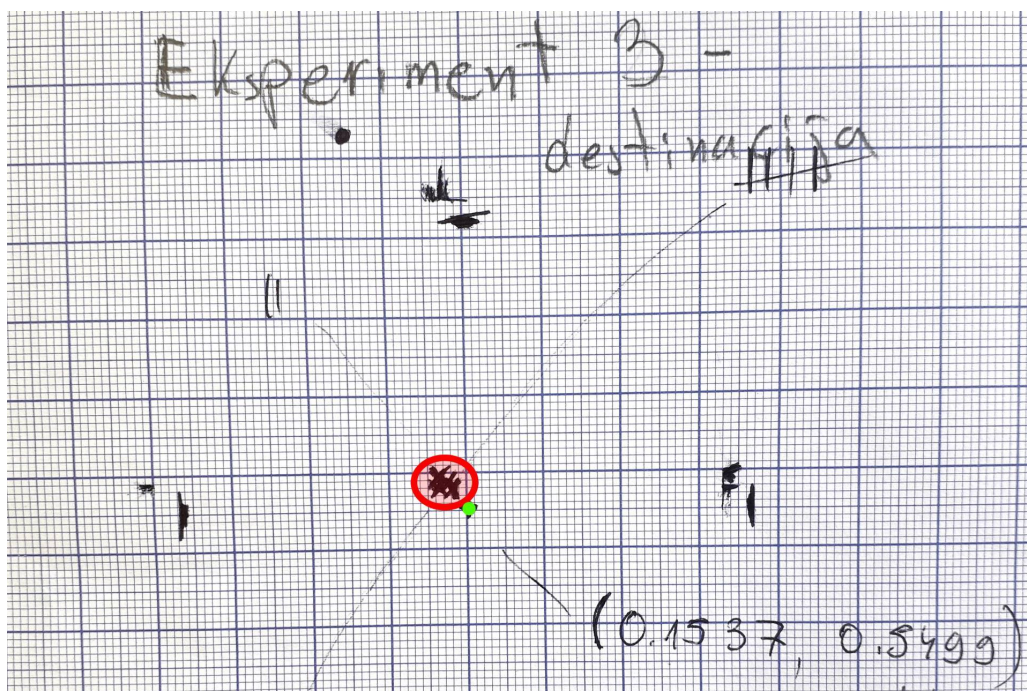 Eksperiment 3 -
destinacija
(0.1537, 0.5499)